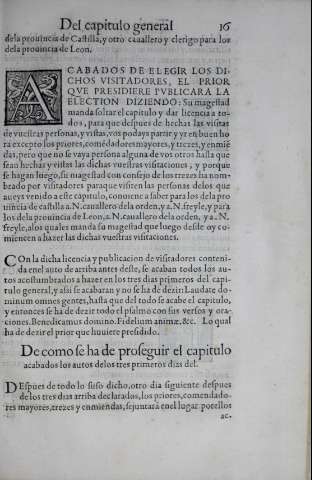 Del capitulo general 16
dela prouincia de Castilla, y otro cauallero y clerigo para los
dela prouincia de Leon.
ACABADOS DE ELEGIR LOS DI
CHOS VISITADORES, EL PRIOR
QVE PRESIDIERE PVBLICARA LA
ELECTION DIZIENDO: Su magestad
manda soltar el capitulo y dar licencia a to-
dos, para que despues de hechas las visitas
de vuestras personas, y vistas, vos podays partir y yr en buen ho
ra excepto los priores, comēdadores mayores, y trezes, y enmiē
das, pero que no se vaya persona alguna de vos otros hasta que
sean hechas y vistas las dichas vuestras visitaciones, y porque
se hagan luego, su magestad con consejo de los trezes ha nom-
brado por visitadores para que visiten las personas de los que
aueys venido a este capitulo, conuiene a saber para los dela pro
uincia de castilla a.N.cauallero dela orden, y a.N.freyle, y para
los dela prouincia de Leon, a.N. cauallero dela orden, y a.N.
freyle, alos quales manda su magestad que luego desde oy co-
miencen a hazer las dichas vuestras visitaciones.
COn la dicha licencia y publicacion de visitadores conteni-
da enel auto de arriba antes deste, se acaban todos los au-
tos acostumbrados a hazer en los tres dias primeros del capi-
tulo general, y assi se acabaran y no se ha de dezir. Laudate do-
minum omnes gentes, hasta que del todo se acabe el capitulo,
y entonces se ha de dezir todo el psalmo con sus versos y ora-
ciones. Benedicamus domino. Fidelium animæ. &c. Lo qual
ha de dezir el prior que huuiere presidido.
De como se ha de proseguir el capitulo
acabados los autos delos tres primeros dias del.
DEspues de todo lo suso dicho, otro dia siguiente despues
de los tres dias arriba declarados, los priores, comendado-
res mayores, trezes y enmiendas, se juntará enel lugar por ellos
ac-